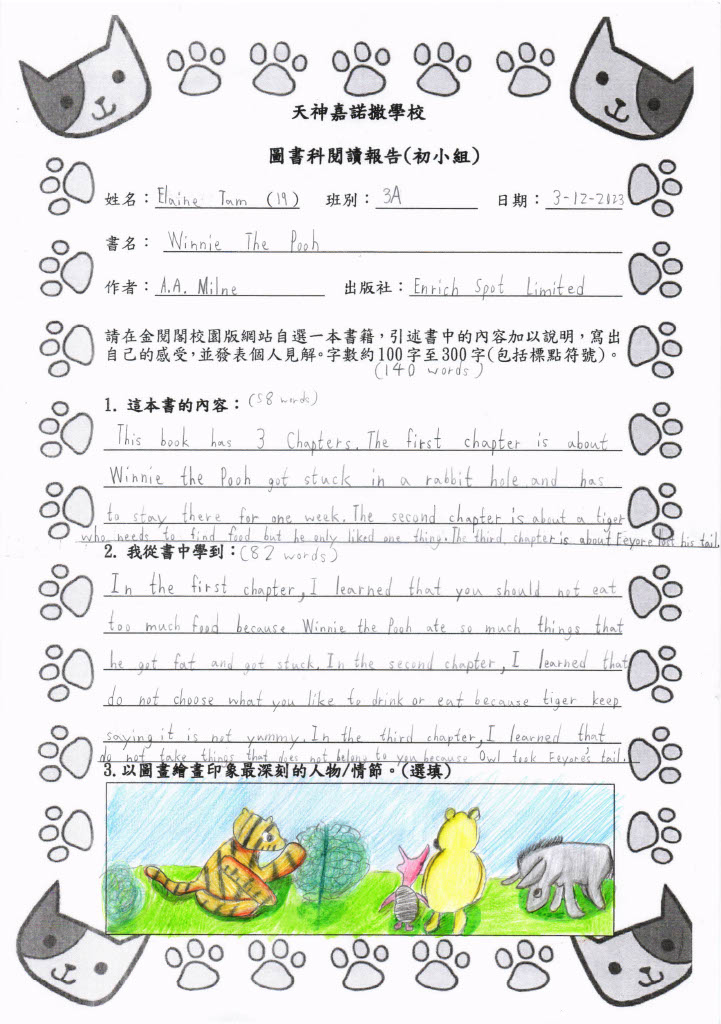 天神嘉諾撒學校
圖書科閱讀報告(初小組)
姓名：Elaine Tam (19) 班別：3A 日期：3-12-2023
書名：Winnie The Pooh
作者：A.A. Milne 出版社：Enrich Spot Limited
請在金閱閣校園版網站自選一本書籍，引述書中的內容加以說明，寫出
自己的感受，並發表個人見解。字數約100字至300字(包括標點符號)。
(140 words)
1. 這本書的內容：(58 words)
This book has 3 Chapters. The first chapter is about
Winnie the Pooh got stuck in a rabbit hole and has
to stay there for one week. The second chapter is about a tiger
who needs to find food but he only liked one thing. The third chapter is about Eeyore lost his tail.
2. 我從書中學到：(82 words)
In the first chapter, I learned that you should not eat
too much food because Winnie the Pooh ate so much things that
he got fat and got stuck. In the second chapter, I learned that
do not choose what you like to drink or eat because tiger keep
saying it is not yummy. In the third chapter, I learned that
do not take things that does not belong to you because Owl took Eeyore's tail.
3. 以圖畫繪畫印象最深刻的人物/情節。(選填)